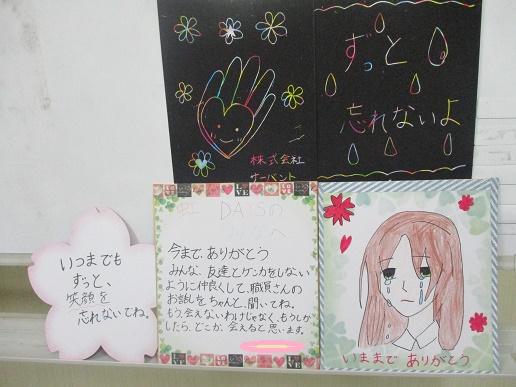 ずっと
忘れないよ
株式会社
サーバント
DAISM
いつまでも
ずっと、
笑顔を
忘れないでね。
今まで、ありがとう
みんな、友達とケンカをしない
ように仲良くして、職員さんの
お話しをちゃんと、聞いてね。
もう会えないわけじゃなく、もうしか
したら、どこか、会えると思います。
いままで ありがとう